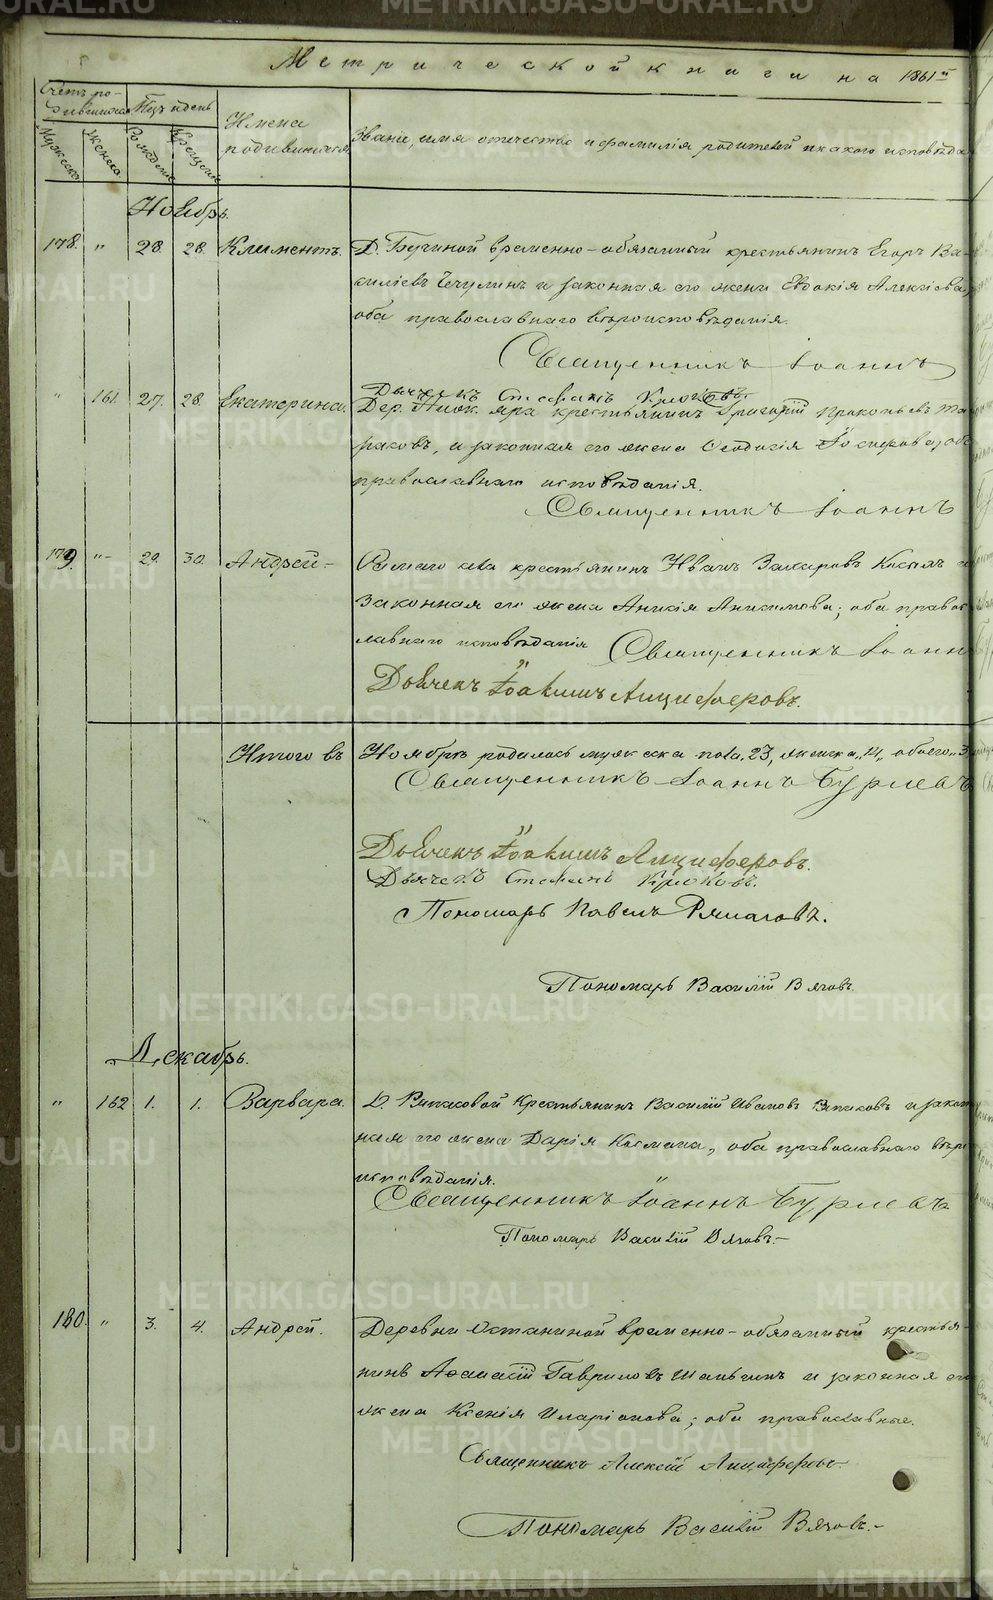 Метрической книги на 1861й
Счетъ ро-
дившихся
Мѣсяцъ и день
Имена
родившихся
Мужеска
Женска
Рожденія
Крещенія
Званіе, имя отчество и фамилія родителей и какого исповѣда
Ноябрь.
178. " 28 28. Климентъ. Д. Бучиной временно-обязанный крестьянинъ Егоръ Ва-
силіевъ и законная его жена Евдокія Алексіева,
оба православнаго вѣроисповѣданія.
Священникъ Іоаннъ
Дьячекъ Стефанъ Крюковъ.
" 161. 27. 28. Екатерина. Дер. яра крестьянинъ Григорій Прокопьевъ Та
расовъ, и законная его жена Ѳеодосія оба
православнаго исповѣданія.
Священникъ Іоаннъ
179. "- 29. 30. Андрей- села крестьянинъ Иванъ Захаровъ и
законная его жена Анисимова; оба правос
лавнаго исповѣданія Священникъ Іоаннъ
Дьячекъ Іоакимъ Анциферовъ.
Итого въ Ноябрѣ родилось мужеска пола 23, женска "14" обоего "3
Священникъ Іоаннъ Бурмевъ
Дьячекъ Іоакимъ Анциферовъ.
Дьячекъ Стефанъ Крюковъ.
Пономарь Павелъ
Пономарь Василій Вяховъ.
Декабрь.
" 162 1. 1. Варвара. Д. Крестьянинъ Василій Ивановъ и закон
ная его жена Дарія Космина, оба православнаго вѣро
исповѣданія.
Священникъ Іоаннъ Бурмевъ
Пономарь Василій Вяховъ.-
180. " 3. 4. Андрей. Деревни Останиной временно-обязанный крестья-
нинъ Аѳанасій Гавриловъ и законная его
жена Ксенія Иларіонова; оба православные.
Священникъ Алексій Анциферовъ
Пономарь Василій Вяховъ.-
METRIKI.GASO-URAL.RU